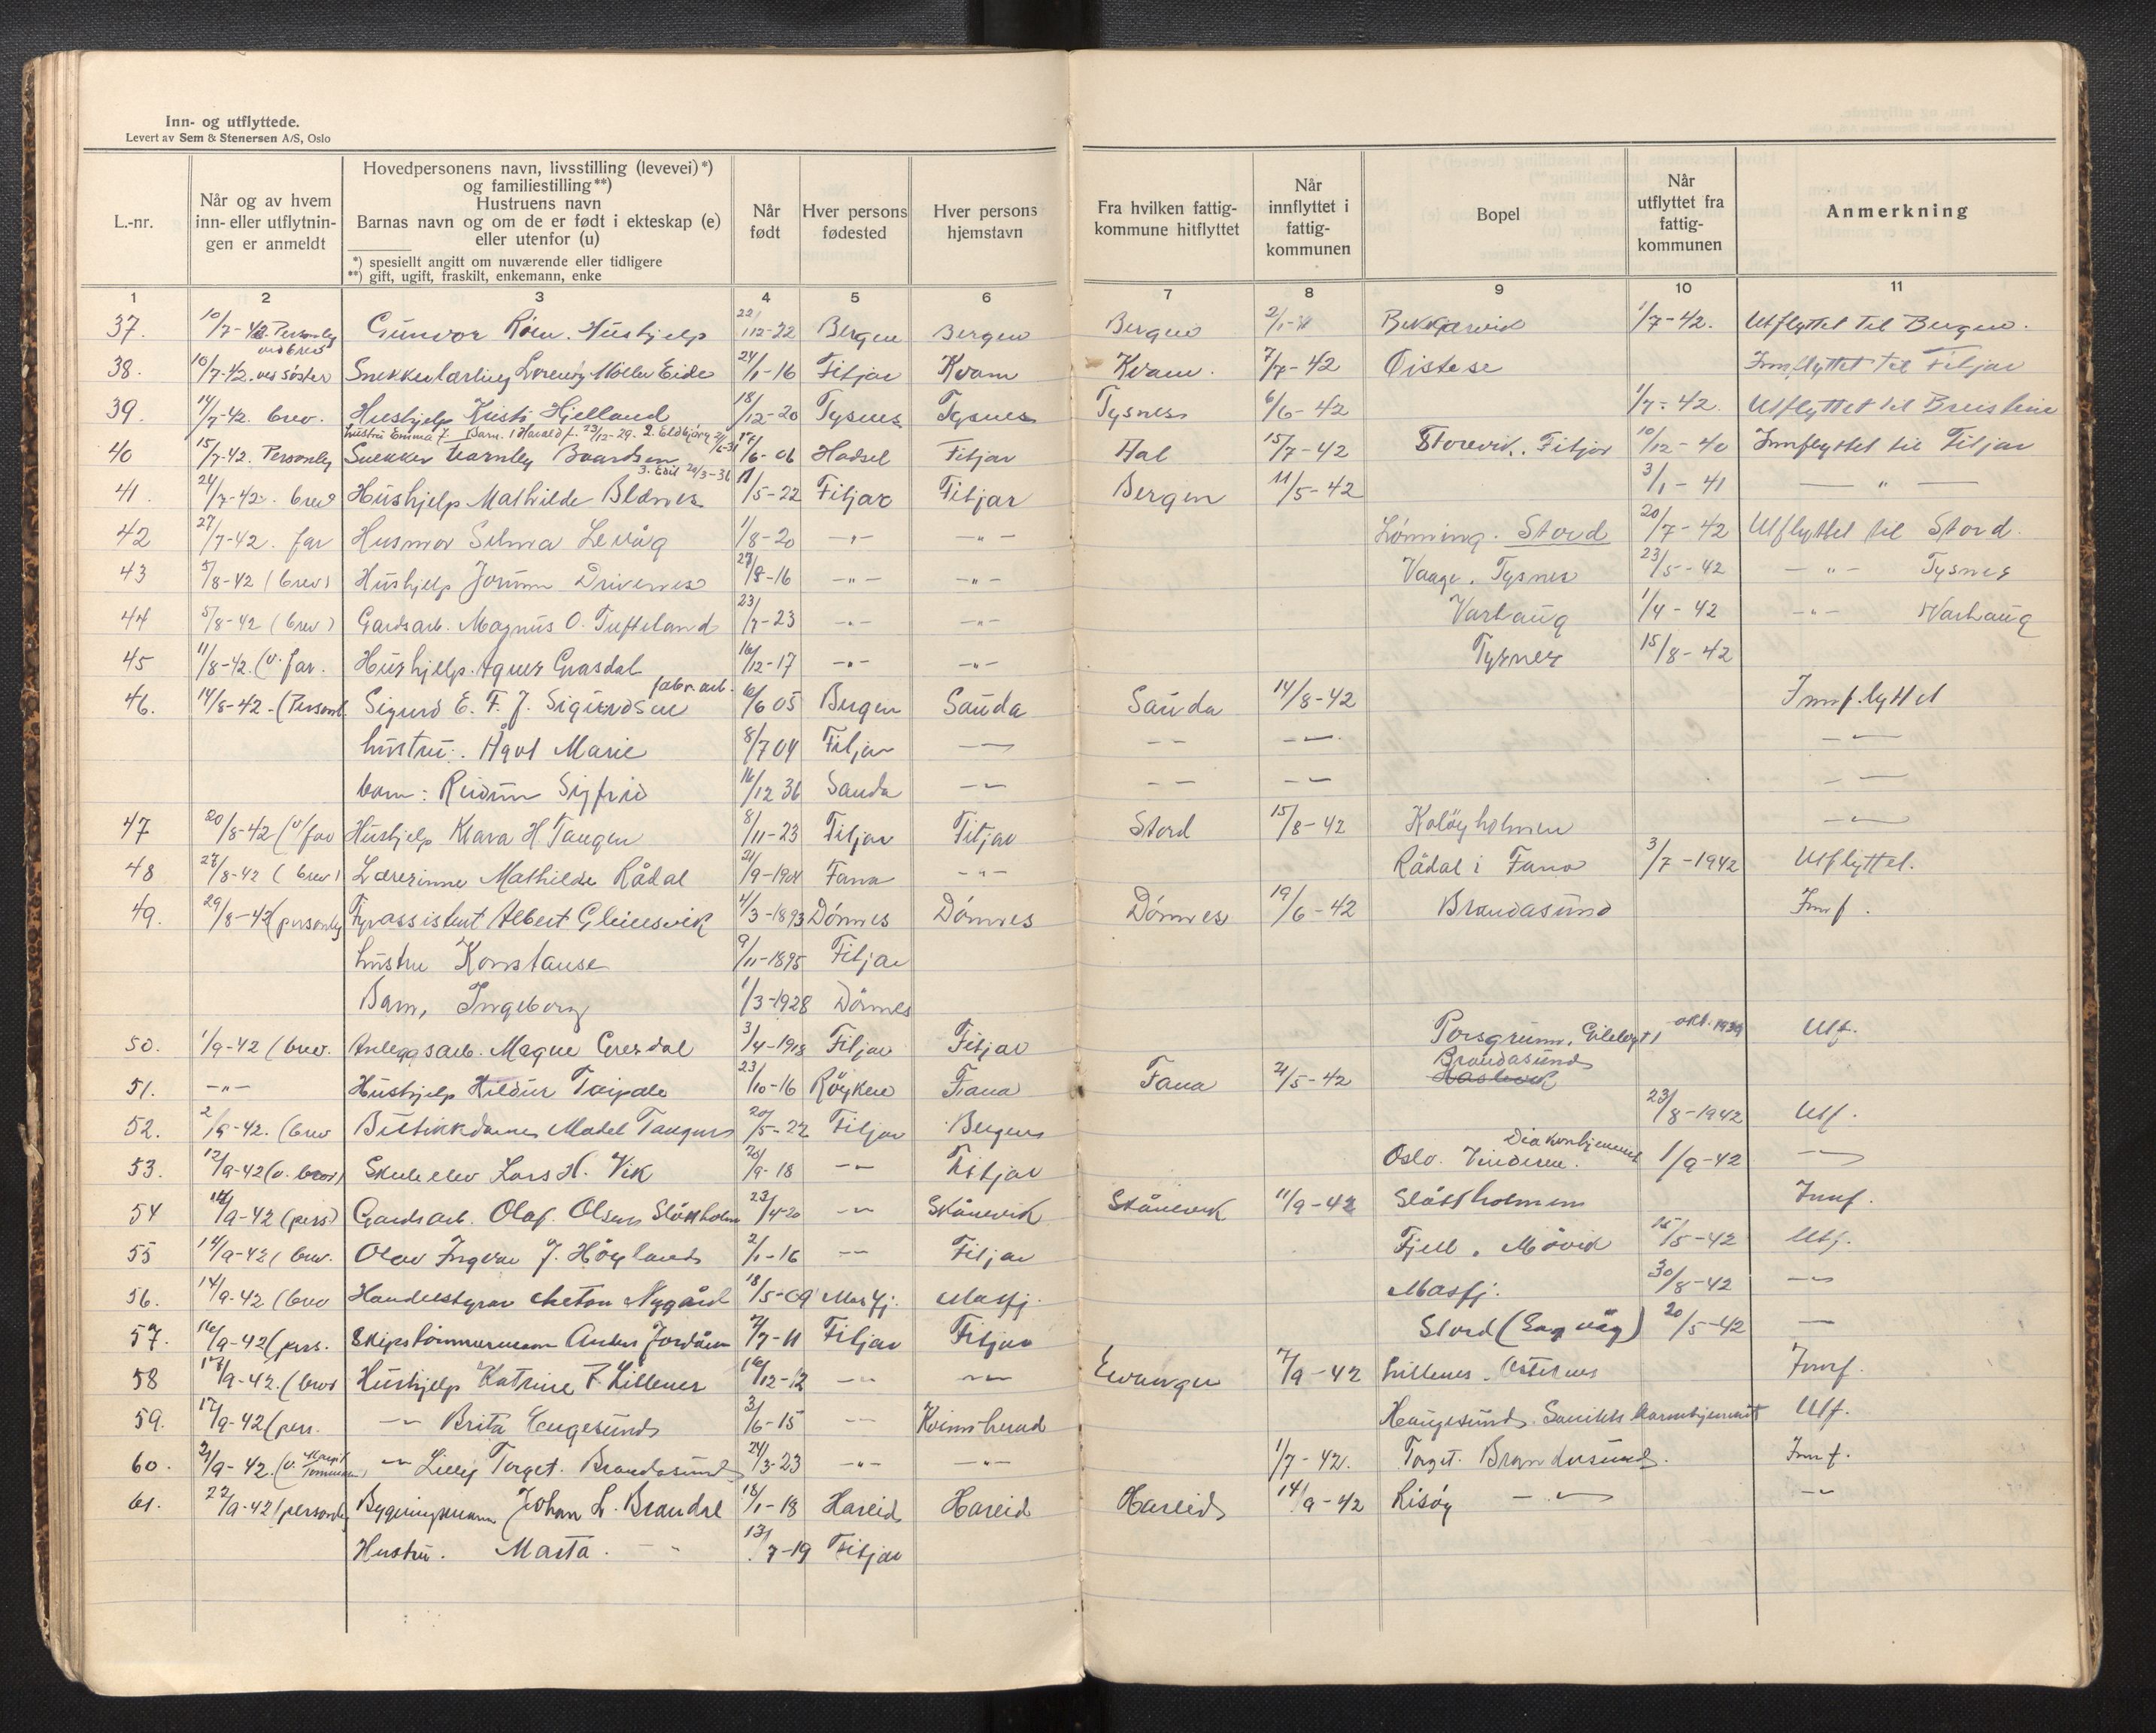 Inn- og utflyttede.
Levert av Sem & Stenersen A/S, Oslo
L.-nr. | Når og av hvem inn- eller utflytningen er anmeldt | Hovedpersonens navn, livsstilling (levevei)*) og familiestilling**) Hustruens navn Barnas navn og om de er født i ekteskap (e) eller utenfor (u) *) spesiellt angitt om nuværende eller tidligere **) gift, ugift, fraskilt, enkemann, enke | Når født | Hver persons fødested | Hver persons hjemstavn | Fra hvilken fattigkommune hitflyttet | Når innflyttet i fattigkommunen | Bopel | Når utflyttet fra fattigkommunen | Anmerkning
1 2 3 4 5 6 7 8 9 10 11
37. 10/7-42. Personlig ved brev Gunvor Hushjelp 22/12-22 Bergen Bergen Bergen Bekkjarvik 1/7-42. Utflyttet til Bergen.
38. 10/7-42. ved søster Snekkerlærling Eide 24/1-16 Fitjar Kvam Kvam. 7/7-42 Øistese Innflyttet til Fitjar
39 14/7-42. brev. Hushjelp Kristi Hjelland 18/12-20 Tysnes Tysnes Tysnes 6/6-42 1/7-42. Utflyttet til
hustru Emma f. Barn. 1 Harald f. 23/12-29. 2. Eldbjørg
40 15/7-42. Personlig Snekker Baardsen 17/6-06 Hadsel Fitjar Hal 15/7-42 Storevik. Fitjar 10/12-40 Innflyttet til Fitjar
3. 20/3-36
41. 24/7-42. brev Hushjelp Mathilde 11/5-22 Fitjar Fitjar Bergen 11/5-42 3/1-41 — " —
42 27/7-42. far Husmor Selma Levåg 1/8-20 -"- -"- Lønning. Stord 20/7-42 Utflyttet til Stord.
43 5/8-42 (brev) Hushjelp Jorunn Drivenes 27/8-16 -"- -"- Vaage. Tysnes 23/5-42 -"- Tysnes
44 5/8-42 (brev) Gardsarb. Magnus O. Tufteland 23/7-23 -"- -"- Varhaug 1/4-42 -"- Varhaug
45 11/8-42. (v. far. Hushjelp. Agnes Grasdal 16/12-17 -"- -"- Tysnes 15/8-42
46. 14/8-42-(Personl. Sigurd E. F. J. Sigurdsen fabr. arb. 6/6 05 Bergen Sauda Sauda 14/8-42 Innflyttet
hustru: Ågot Marie 8/7 04 Fitjar -"- -- -"- -"-
barn: Reidun Sigfrid 16/12 36 Sauda -"- -- -"- -"-
47 20/8-42 (v/far Hushjelp Klara H Tangen 8/11-23 Fitjar Fitjar Stord 15/8-42 Koløyholmen -"-
48 27/8-42 (brev) Lærerinne Mathilde Rådal 21/9-1904 Fana -"- Rådal i Fana 3/7-1942 Utflyttet.
49. 29/8-42 (personlig Fyrassistent Albert Gleinsvik 4/3-1893 Dönnes Dönnes Dönnes 19/6-42 Brandasund Innf.
hustru Konstanse 9/11-1895 Fitjar
Barn, Ingeborg 1/3-1928 Dönnes
50. 1/9-42 (brev. Anleggsarb. Magne 3/4-1918 Fitjar Fitjar Porsgrunn. okt. 1939 Utf.
51. -"- Hushjelp Hildur Taipale 23/10-16 Röyken Fana Fana 21/5-42 Brandasund
52. 2/9-42. (brev Butikkdame Madel Tangen 20/5-22 Fitjar Bergen 23/8-1942 Utf.
53. 12/9-42 (v. brev) Skuleelev Lars H. Vik 20/9-18 -"- Fitjar Oslo. Vinderen. Diakonhjemmet 1/9-42 -"-
54 14/9-42 (pers) Gardsarb. Olaf Olsen 23/4-20 -"- Skånevik Skånevik 11/9-42 Slåttholmen Innf.
55 14/9-42 (brev. Olav Ingvar J. Höyland 2/1-16 -"- Fitjar Fjell. Mövik 15/5-42 Utf.
56. 14/9-42 (brev Handelstyrar Anton Nygård 18/5-09 Masfj. Masfj. Masfj. 30/8-42 -"-
57. 16/9-42 (pers. Skipstömmermann Anders 21/7-11 Fitjar Fitjar Stord (Sagvåg) 20/5-42 —
58 17/9-42. (brev Hushjelp Katrine P. Lillenes 16/12-12 -"- -"- Evanger 7/9-42 Lillenes. Østernes Innf.
59. 17/9-42 (pers. -"- Brita Engesund 3/6-15 -- Kvinnherad Haugesund. Sanitets Barnehjemmet Utf.
60. 21/9-42. (v. Margit -"- Lilly Torget. Brandasund 24/3-23 -"- -"- 1/7-42. Torget. Brandasund. Innf.
61. 22/9-42 (personlig Bygningsmann Johan L. Brandal 18/1-18 Hareid Hareid Hareid 14/9-42 Risøy -"- -"-
Hustru. Marta. -"- 13/7-19 Fitjar